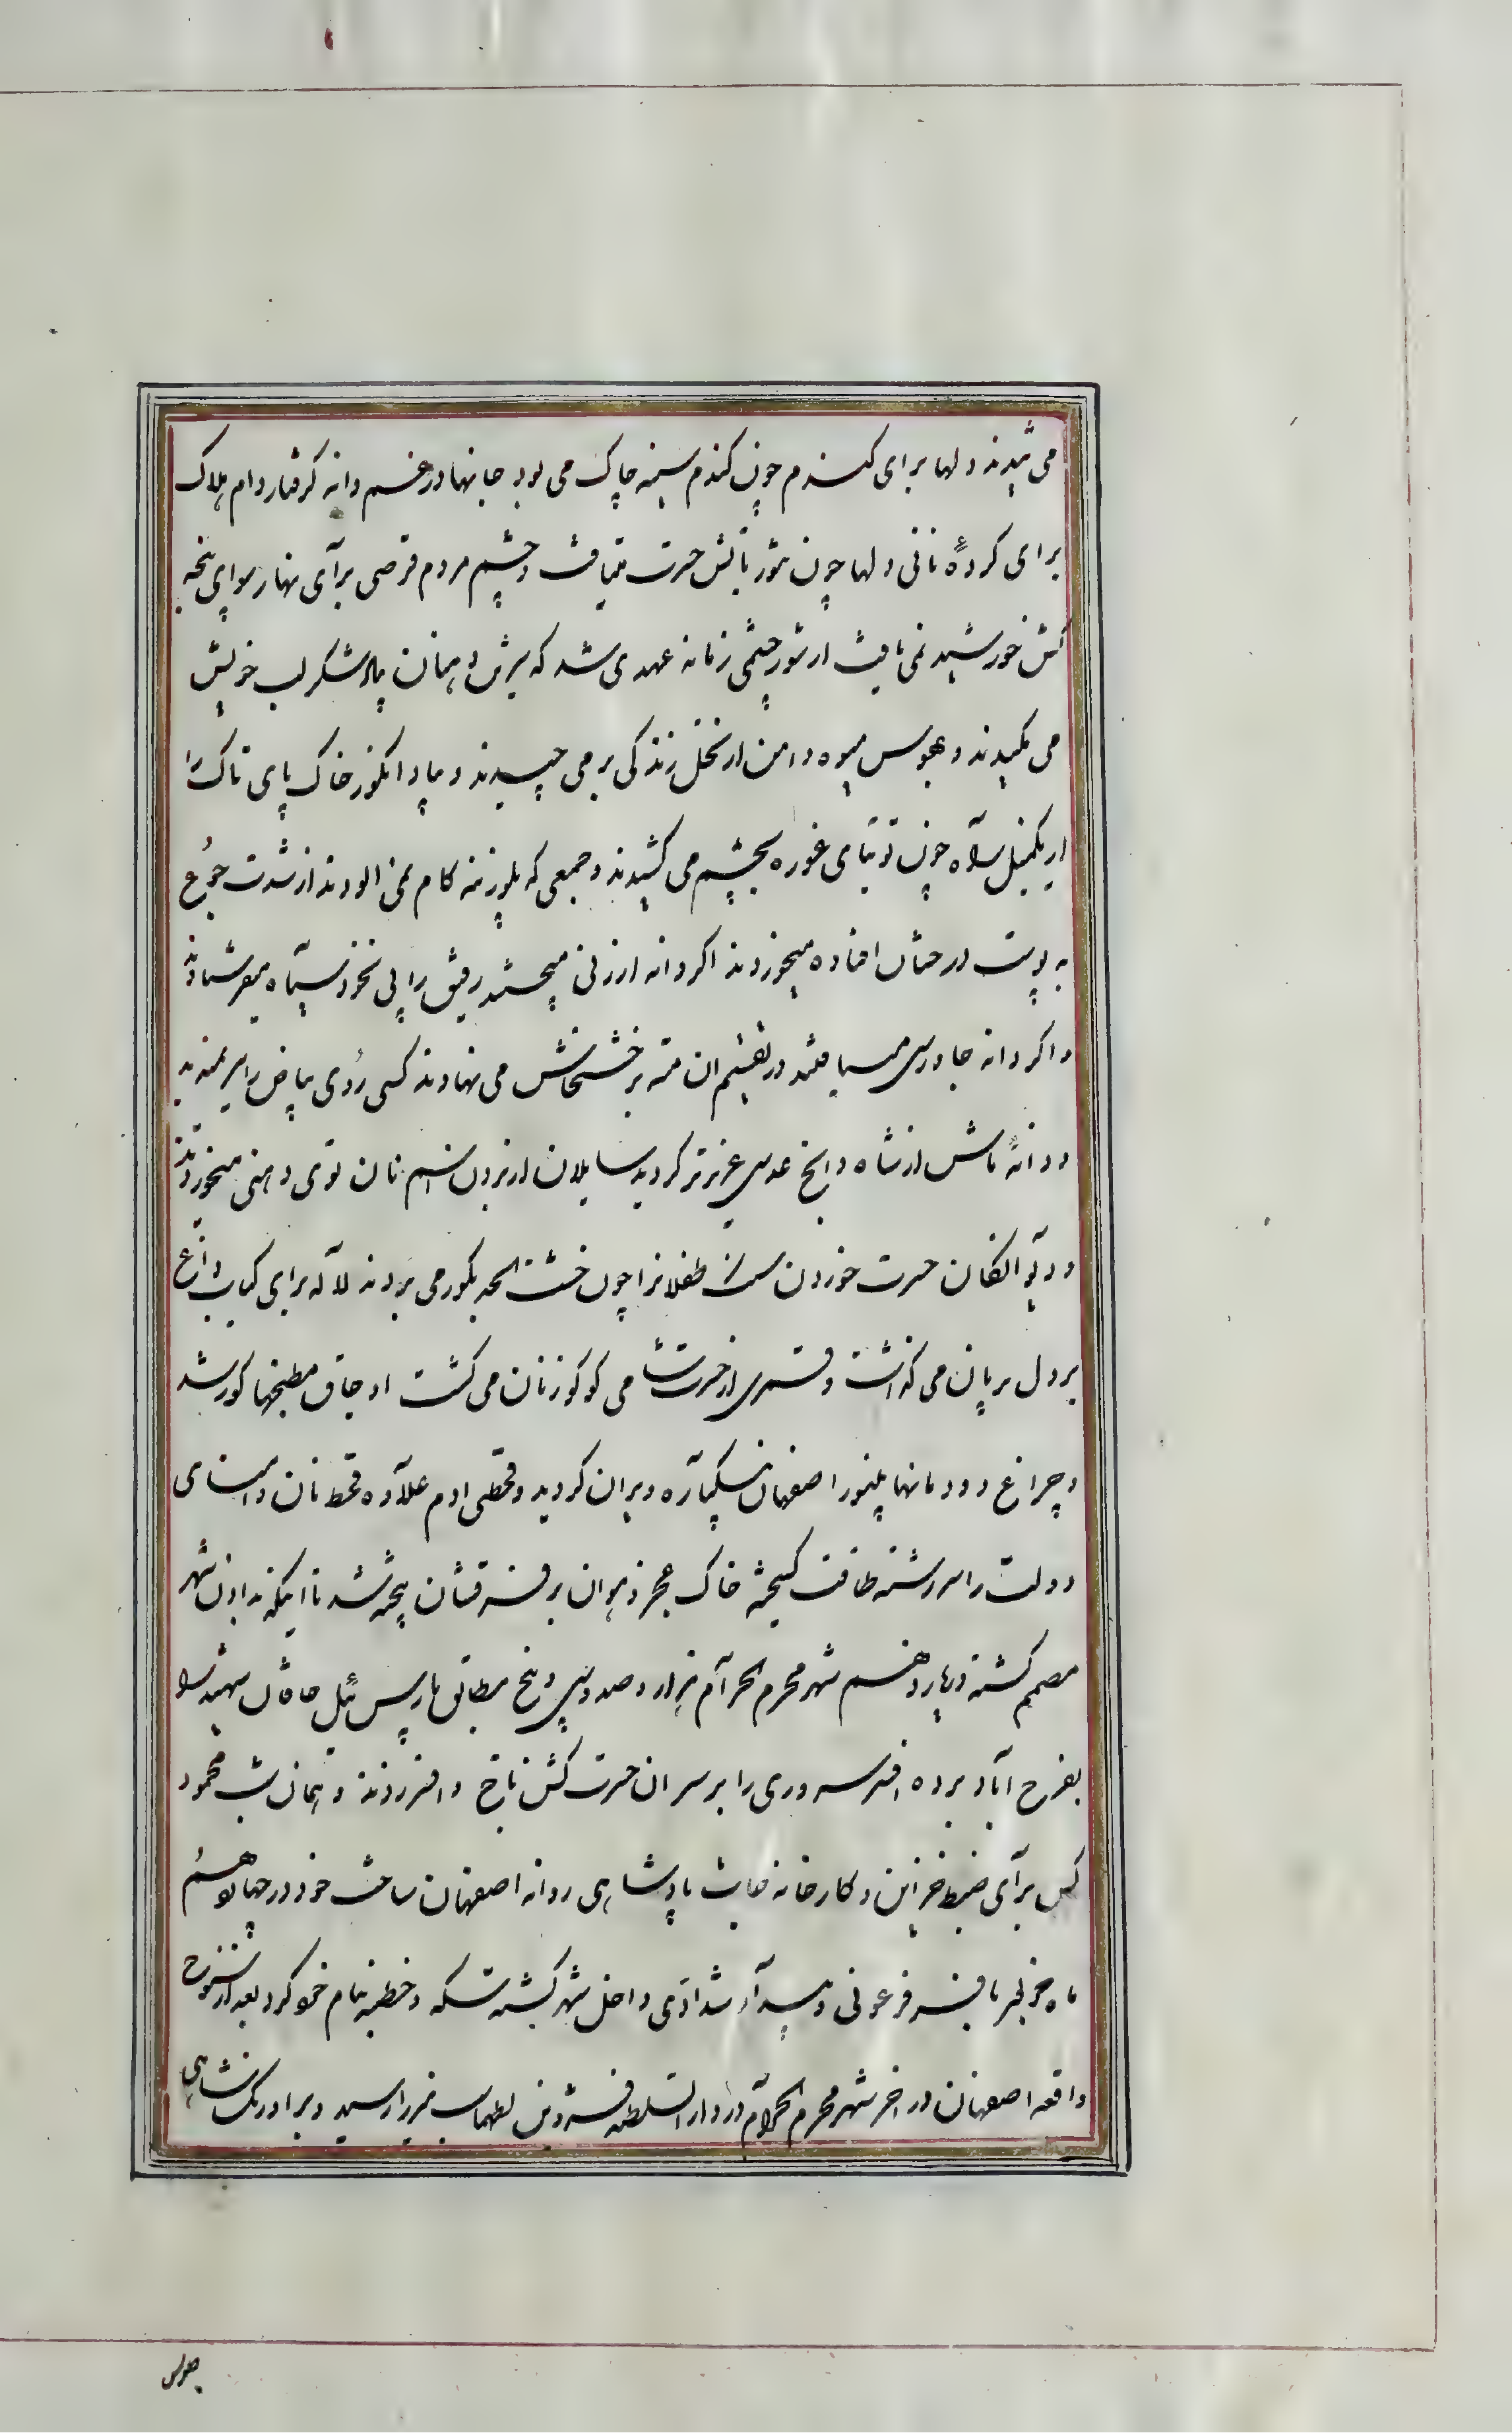 می شدند دلها برای کندم چون کندم سینه چاک می بود جانها در غم دانه کرفتار دام هلاک
برای کردهٔ نانی دلها چون تنور بآتش حسرت میتافت و چشم مردم قرصی برآی نهار سوای پنجه
کش خورشید نمی یافت از شور چشمی زمانه عهدی شد که شیرین دهنان بیاد شکر لب خویش
می مکیدند و بهوس میوه دامن از نخل زندکی بر می چیدند و بیاد انکور خاک پای تاک را
از یکمیل راه چون توتیای غوره بچشم می کشیدند و جمعی که بلوزینه کام نمی الودند از شدت جوع
به پوست درختان افتاده میخوردند اکر دانه ارزنی میجستند رفیق را پی نخود سیاه میفرستادند
و اکر دانه جاورسی می یافتند در تقسیم ان مته بر خشخاش می نهادند کسی روی بیاض را سیر نمیدید
و دانهٔ ماش از شاه دانج عدسی عزیزتر کردید سایلان از بردن اسم نان توی دهنی میخوردند
و دیوانکان حسرت خوردن سنک طفلانرا چون خشت لحد بکور می بردند لاله برای کباب داغ
بر دل بریان می کذاشت و قمری از حسرت شامی کوکو زنان می کشت اوجاق مطبخها کور شد
و چراغ دودمانها بینور اصفهان یکباره ویران کردید و قحطی ادم علاوه قحط نان و امنای
دولت را سررشته طاقت کسیخته خاک عجز و هوان بر فرقشان بیخته شد تا اینکه بدادن شهر
مصمم کشته و یازدهم شهر محرم الحرام هزار و صد و سی و پنج مطابق بارس ئیل خاقان شهید را
بفرح آباد برده افسر سروری را بر سر ان حسرت کش تاج و افسر زدند و همان شب محمود
کس برآی ضبط خزاین و کارخانه جات پادشاهی روانه اصفهان ساخت خود در چهاردهم
ماه مزبور با فر فرعونی و پندار شدادی داخل شهر کشته سکه و خطبه بنام خود کرد بعد از سنوح
واقعه اصفهان در اخر شهر محرم الحرام در دار السلطنه قزوین بطهماسب میرزا رسید و بر اورنک شاهی
جلوس